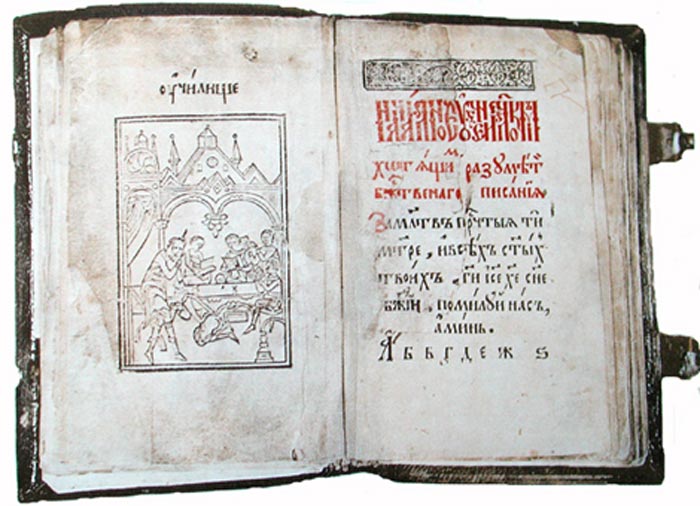 оучи́лище
хотѧ́щимъ разꙋмѣ́ти
бж҃твенаго писа́нїѧ
За мл҃твъ прⷱ҇тыѧ ти
мт҃ре, и всѣхъ ст҃ыхъ
твоихъ, ги҃ їс҃е хе҃ сн҃е
бж҃їи, помилꙋй насъ,
аминь.
А б в г д е ж ѕ